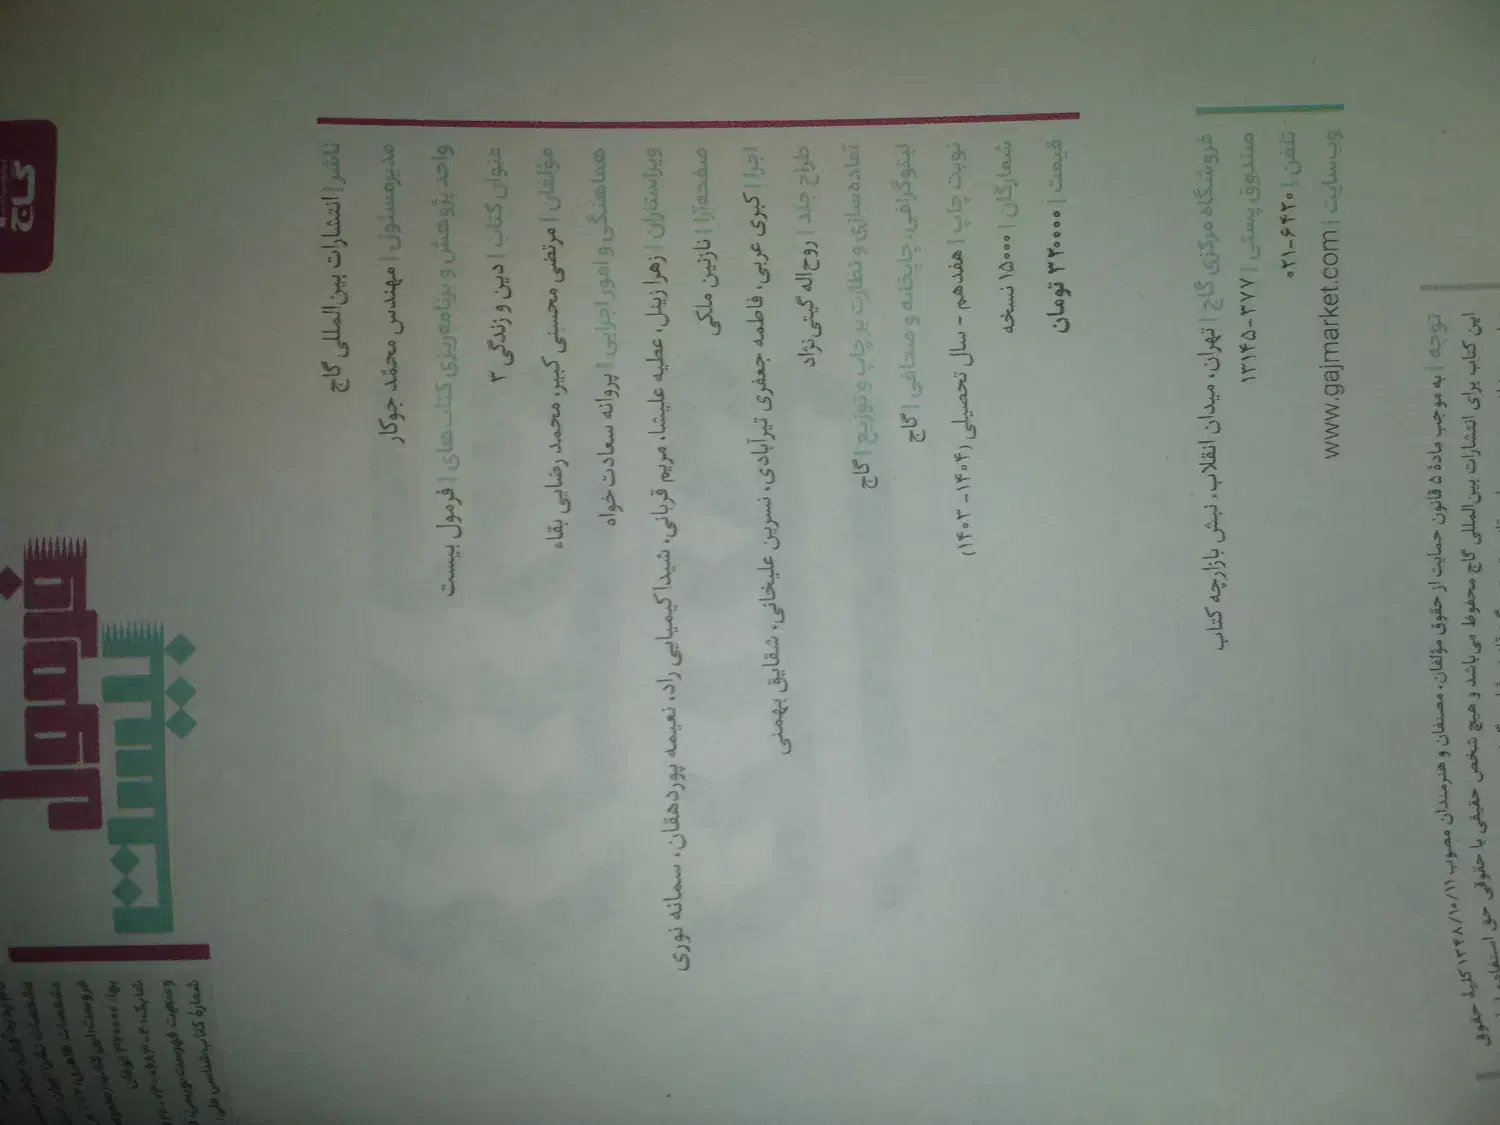 گاج
فرمول
بیست
ناشر | انتشارات بین‌المللی گاج
مدیرمسئول | مهندس محمّد جوکار
واحد پژوهش و برنامه‌ریزی کتاب‌های | فرمول بیست
عنوان کتاب | دین و زندگی ۳
مؤلفان | مرتضی محسنی کبیر، محمد رضایی بقاء
هماهنگی و امور اجرایی | پروانه سعادت‌خواه
ویراستاران | زهرا زینل، عطیه علیشا، مریم قربانی، شیدا کیمیایی راد، نعیمه پوردهقان، سمانه نوری
صفحه‌آرا | نازنین ملکی
اجرا | کبری عربی، فاطمه جعفری تیرآبادی، نسرین علیخانی، شقایق بهمنی
طراح جلد | روح‌اله گیتی‌نژاد
آماده‌سازی و نظارت بر چاپ و توزیع | گاج
لیتوگرافی، چاپخانه و صحافی | گاج
نوبت چاپ | هفدهم - سال تحصیلی (۱۴۰۴-۱۴۰۳)
شمارگان | ۱۵۰۰۰ نسخه
قیمت | ۳۲۰۰۰۰ تومان
فروشگاه مرکزی گاج | تهران، میدان انقلاب، نبش بازارچه کتاب
صندوق پستی | ۳۷۷-۱۳۱۴۵
تلفن | ۰۲۱-۶۴۲۰
وب‌سایت | www.gajmarket.com
توجه | به موجب مادهٔ ۵ قانون حمایت از حقوق مؤلفان، مصنفان و هنرمندان مصوب ۱۳۴۸/۱۰/۱۱ کلیهٔ حقوق
این کتاب برای انتشارات بین‌المللی گاج محفوظ می‌باشد و هیچ شخص حقیقی یا حقوقی حق استفاده